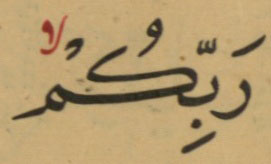 رَبِّكُمْ ۙ